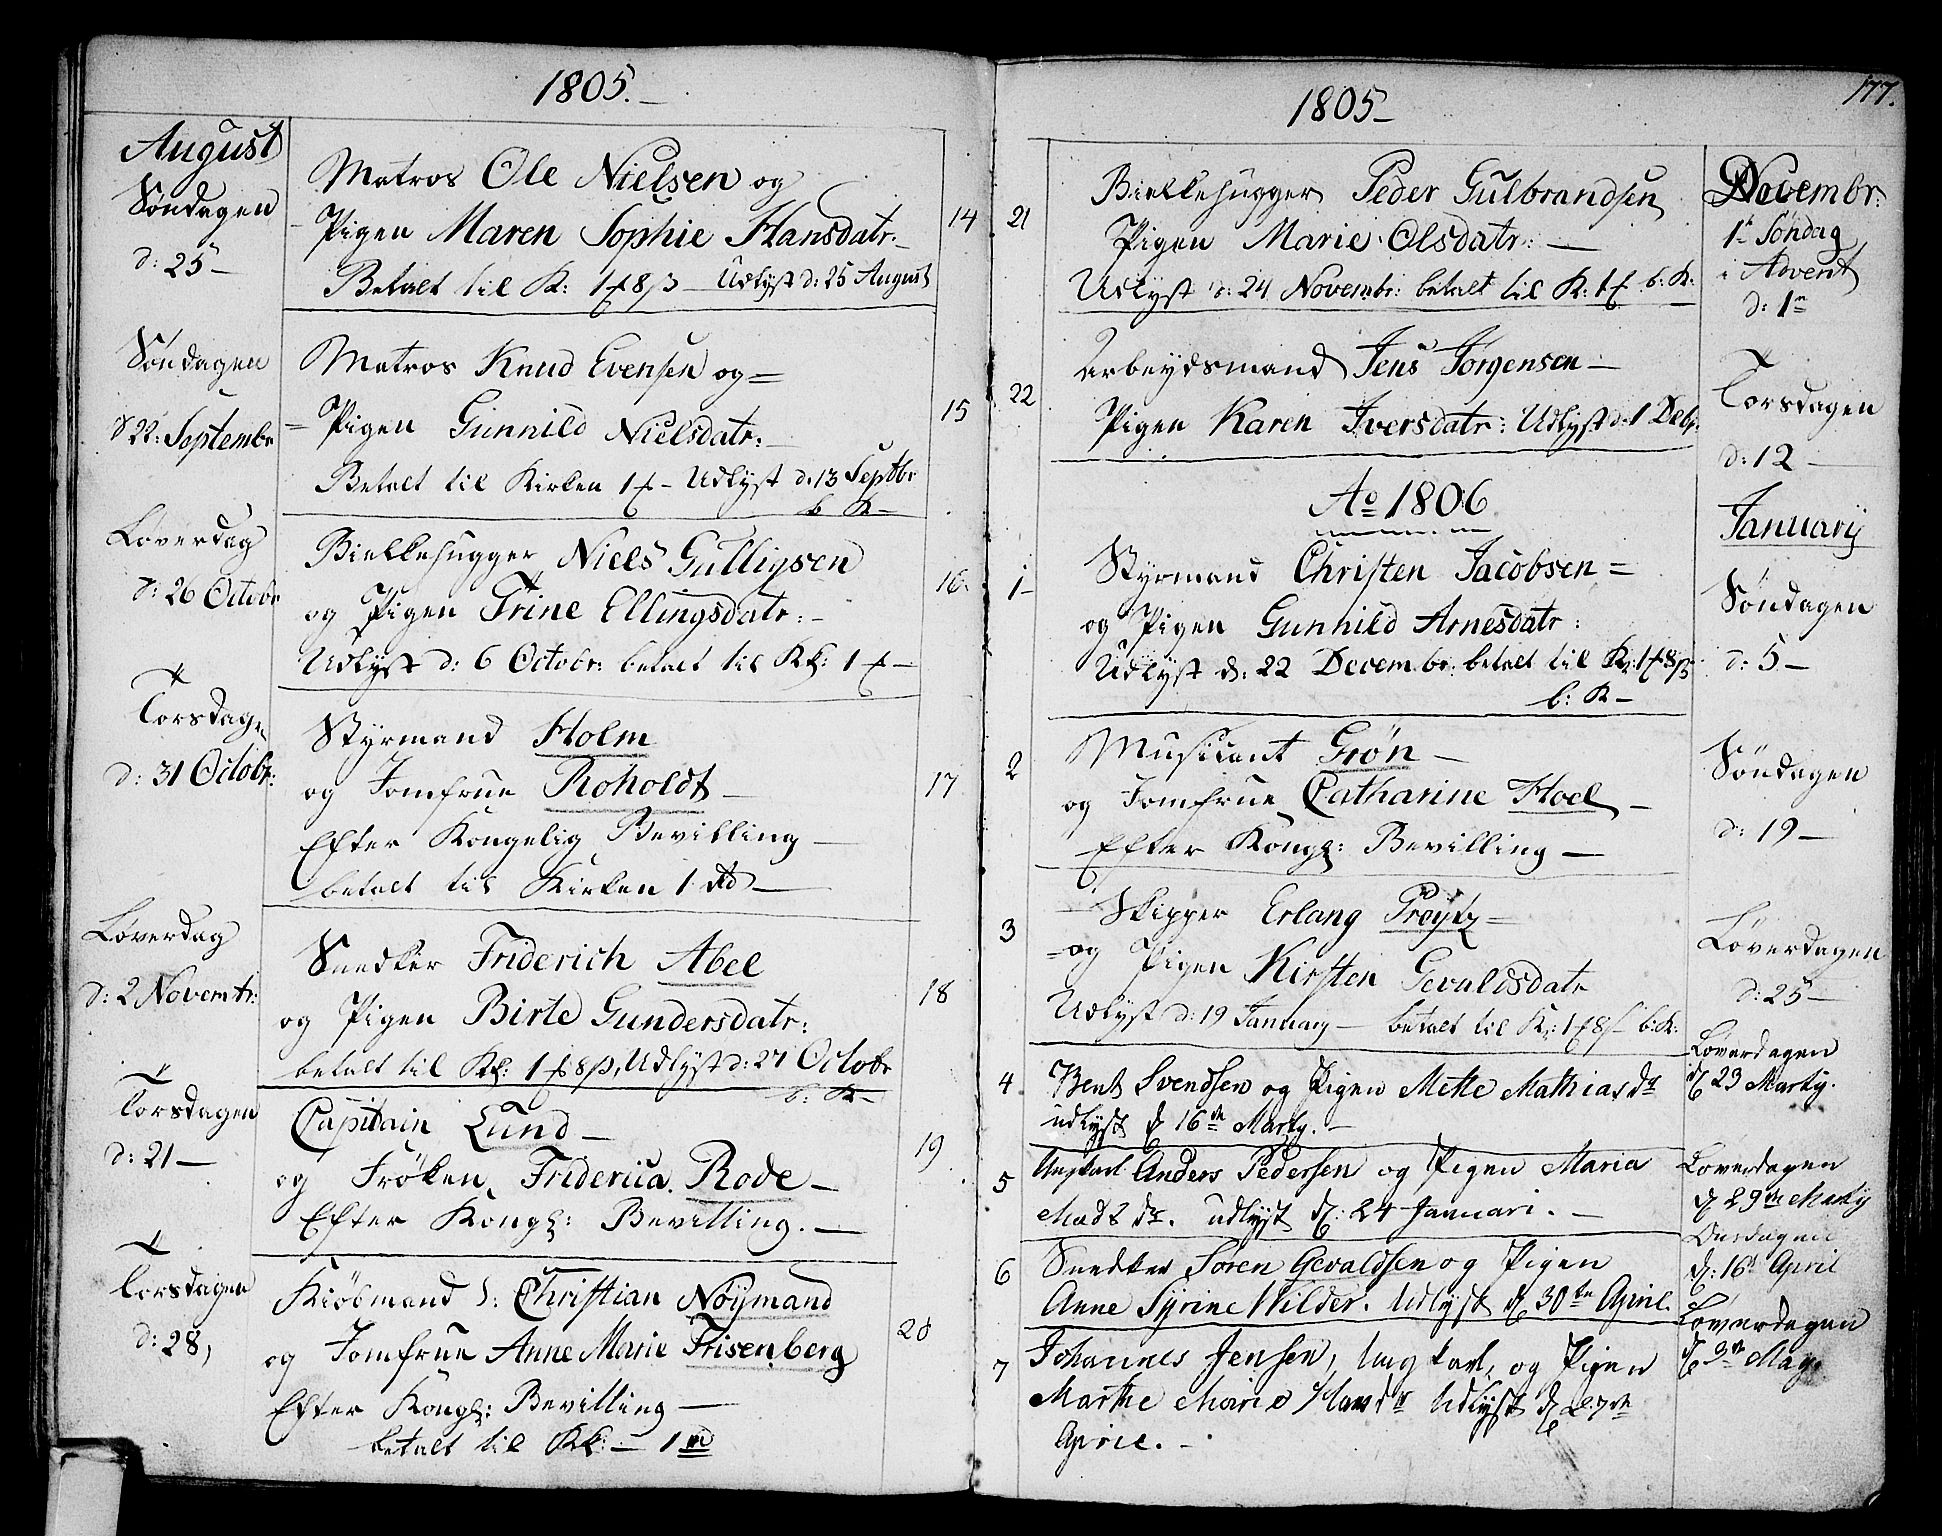 1805.
August
Søndagen
d: 25 –
Matros Ole Nielsen og
Pigen Maren Sophie Hansdatr. –
Betalt til K: 1 f 8 ß – Udlyst d: 25 August
14
Søndagen
d 22: Septembr
Matros Knud Evensen og =
– Pigen Gunnild Nielsdatr: –
Betalt til Kirken 1 f – Udlyst d. 13 Septbr
b K –
15
Løverdag
d: 26 Octobr
Biellehugger Niels Gulligsen
og Pigen Trine Ellingsdatr: –
Udlyst d: 6 Octobr: betalt til Kk: 1 f –
16.
Torsdagen
d: 31 Octobr:
Styrmand Holm
og Jomfrue Roholdt –
Efter Kongelig Bevilling –
betalt til Kirken 1 Rd –
17
Løverdag
d: 2 Novembr:
Snedker Friderich Abel
og Pigen Birte Gundersdatr:
betalt til Kk: 1 f 8 ß, Udlyst d: 27 Octobr
b: K –
18
Torsdagen
d: 21 –
Capitain Lund –
og Frøken Friderica Rode –
Efter Kongl: Bevilling. –
19
Torsdagen
d: 28,
Kiøbmand S: Christian Nøymand
og Jomfrue Anne Marie Frisenberg
Efter Kongl: Bevilling –
betalt til Kk: – 1
20
177.
1805 –
Novembr:
1te Søndag
i Advent
d: 1te
21
Biellehugger Peder Gulbrandsen
Pigen Marie Olsdatr: –
Udlyst d: 24 Novembr: betalt til K: 1 f b: K:
22
Arbeydsmand Jens Jørgensen –
Pigen Karen Iversdatr: Udlyst d: 1 Debr.
Torsdagen
d: 12 –
Ao 1806
January
1 –
Styrmand Christen Jacobsen =
og Pigen Gunnild Arnesdatr:
Udlyst d: 22 Decembr: betalt til K: 1 f 8 ß
b: K –
Søndagen
d: 5 –
2
Musicant Grøn –
og Jomfrue Catharine Hoel –
Efter Kongl: Bevilling –
Søndagen
d: 19 –
3
Skipper Erlang Prøytz =
= og Pigen Kirsten Gevaldsdatr
Udlyst d: 19 January – betalt til K: 1 f 8 ß b: K:
Løverdagen
d: 25 –
4
Bent Svendsen og Pigen Mette Mathiasdr
udlyst d 16de Marty. –
Løverdagen
d 23 Marty.
5
Ungkarl Anders Pedersen og Pigen Maria
Mads dr. udlyst d: 24 Januari. –
Løverdagen
d 29de Marty
6
Snedker Søren Gevaldsen og Pigen
Anne Syrine Wilder. Udlyst d 30te April.
Onsdagen
d: 16d April
7
Johannes Jensen, Ungkarl, og Pigen
Marthe Marie Hansdr Udlyst d 27de
April. –
Løverdagen
d 3de May